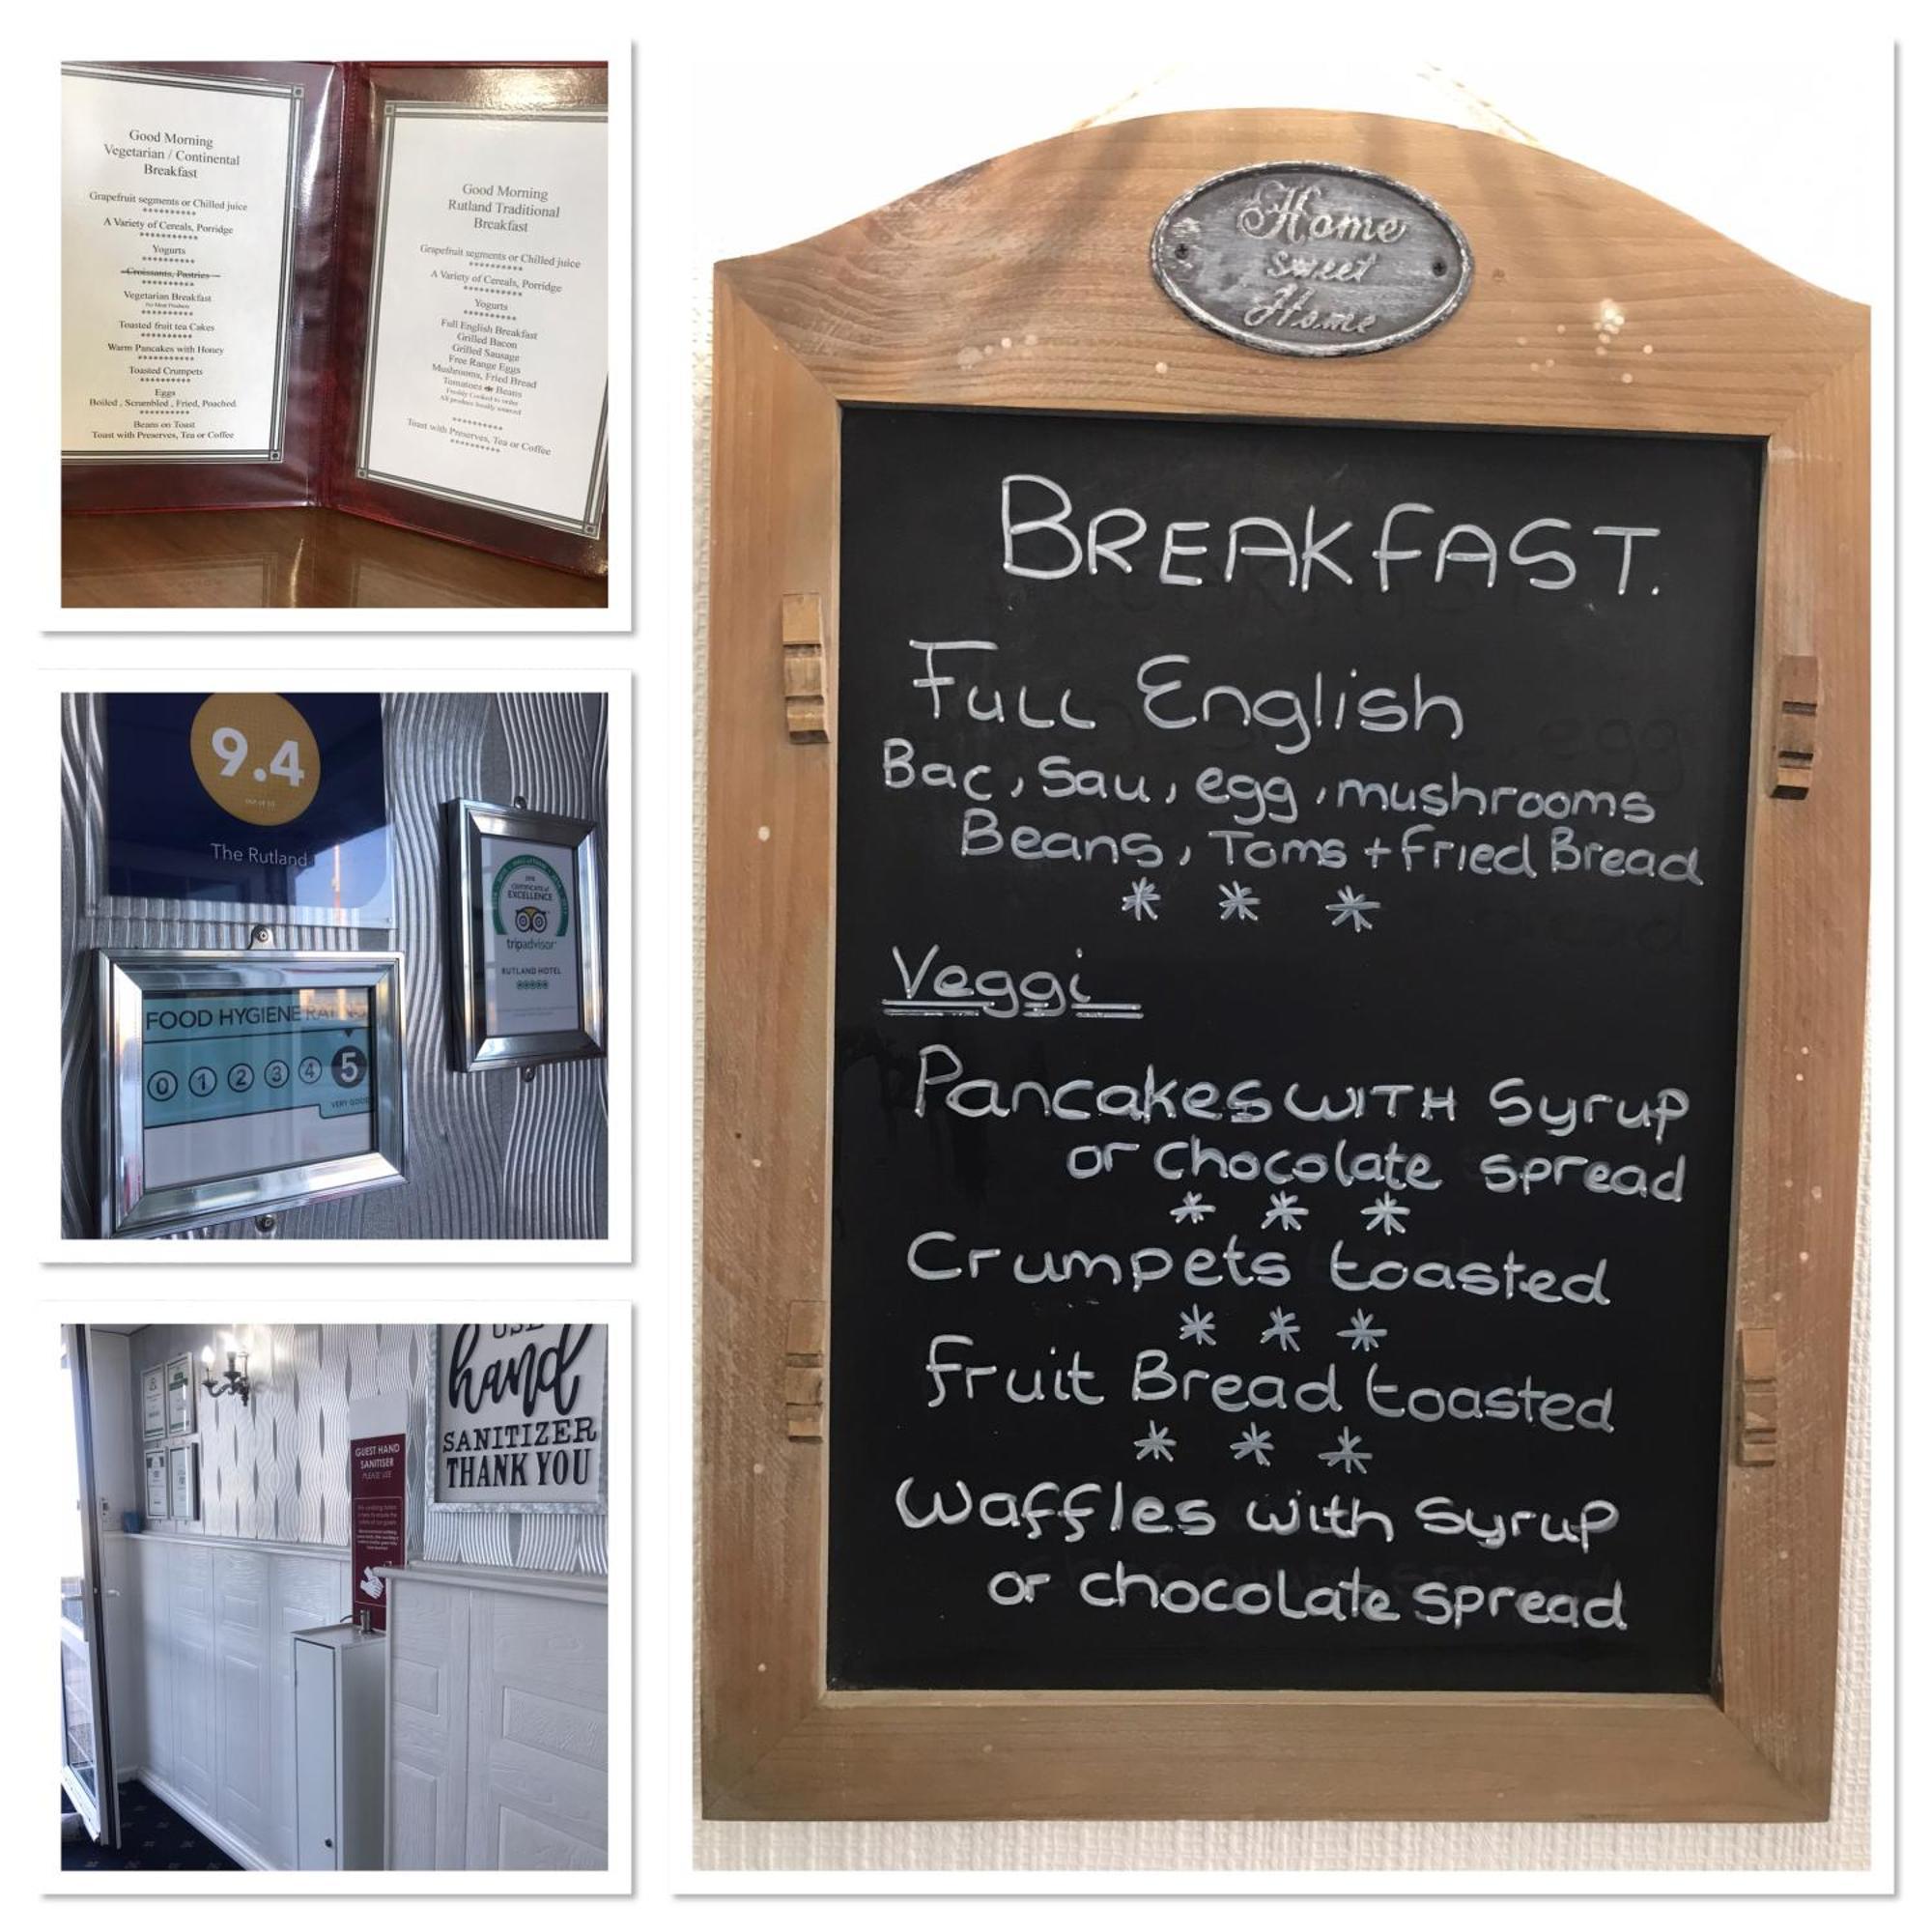 Good Morning
Vegetarian / Continental
Breakfast
Grapefruit segments or Chilled juice
**********
A Variety of Cereals, Porridge
***********
Yogurts
**********
Croissants, Pastries
**********
Vegetarian Breakfast
No Meat Products
**********
Toasted fruit tea Cakes
**********
Warm Pancakes with Honey
***********
Toasted Crumpets
**********
Eggs
Boiled , Scrambled , Fried, Poached.
**********
Beans on Toast
Toast with Preserves, Tea or Coffee
Good Morning
Rutland Traditional
Breakfast
Grapefruit segments or Chilled juice
**********
A Variety of Cereals, Porridge
***********
Yogurts
**********
Full English Breakfast
Grilled Bacon
Grilled Sausage
Free Range Eggs
Mushrooms, Fried Bread
Tomatoes Beans
Freshly Cooked to order
All produce locally sourced
**********
Toast with Preserves, Tea or Coffee
**********
9.4
The Rutland
CERTIFICATE of
EXCELLENCE
tripadvisor
RUTLAND HOTEL
FOOD HYGIENE RATING
0 1 2 3 4 5
VERY GOOD
USE
hand
SANITIZER
THANK YOU
GUEST HAND
SANITISER
PLEASE USE
Home
Sweet
Home
BREAKFAST.
Full English
Bac, Sau, egg, mushrooms
Beans, Toms + Fried Bread
* * *
Veggi
Pancakes WITH Syrup
or chocolate spread
* * *
Crumpets toasted
* * *
Fruit Bread toasted
* * *
Waffles with Syrup
or chocolate spread